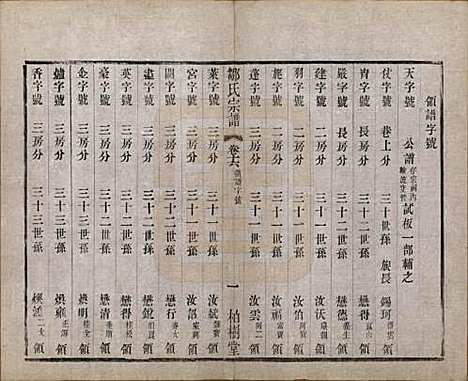 領譜字號
天字號 公譜 存宗祠內 試板一部輔之
仗字號 卷上分 三十世孫 族長 錫珂 領
胄字號 長房分 三十一世孫 懋得 領
嚴字號 長房分 三十一世孫 懋德 領
建字號 二房分 三十一世孫 汝沃 領
羽字號 二房分 三十一世孫 汝怡 領
旄字號 二房分 三十一世孫 汝福 領
蓬字號 三房分 三十一世孫 汝雲 領
鄒氏宗譜 卷六 領譜字號 一 柏樹堂
萊字號 三房分 三十一世孫 汝斌 領
宮字號 三房分 三十一世孫 汝韶 領
闢字號 三房分 三十二世孫 懋行 領
畫字號 三房分 三十二世孫 懋銳 領
英字號 三房分 三十二世孫 懋得 領
豪字號 三房分 三十二世孫 懋清 領
金字號 三房分 三十二世孫 懋明 領
爐字號 三房分 三十三世孫 煥雍 領
香字號 三房分 三十三世孫 領